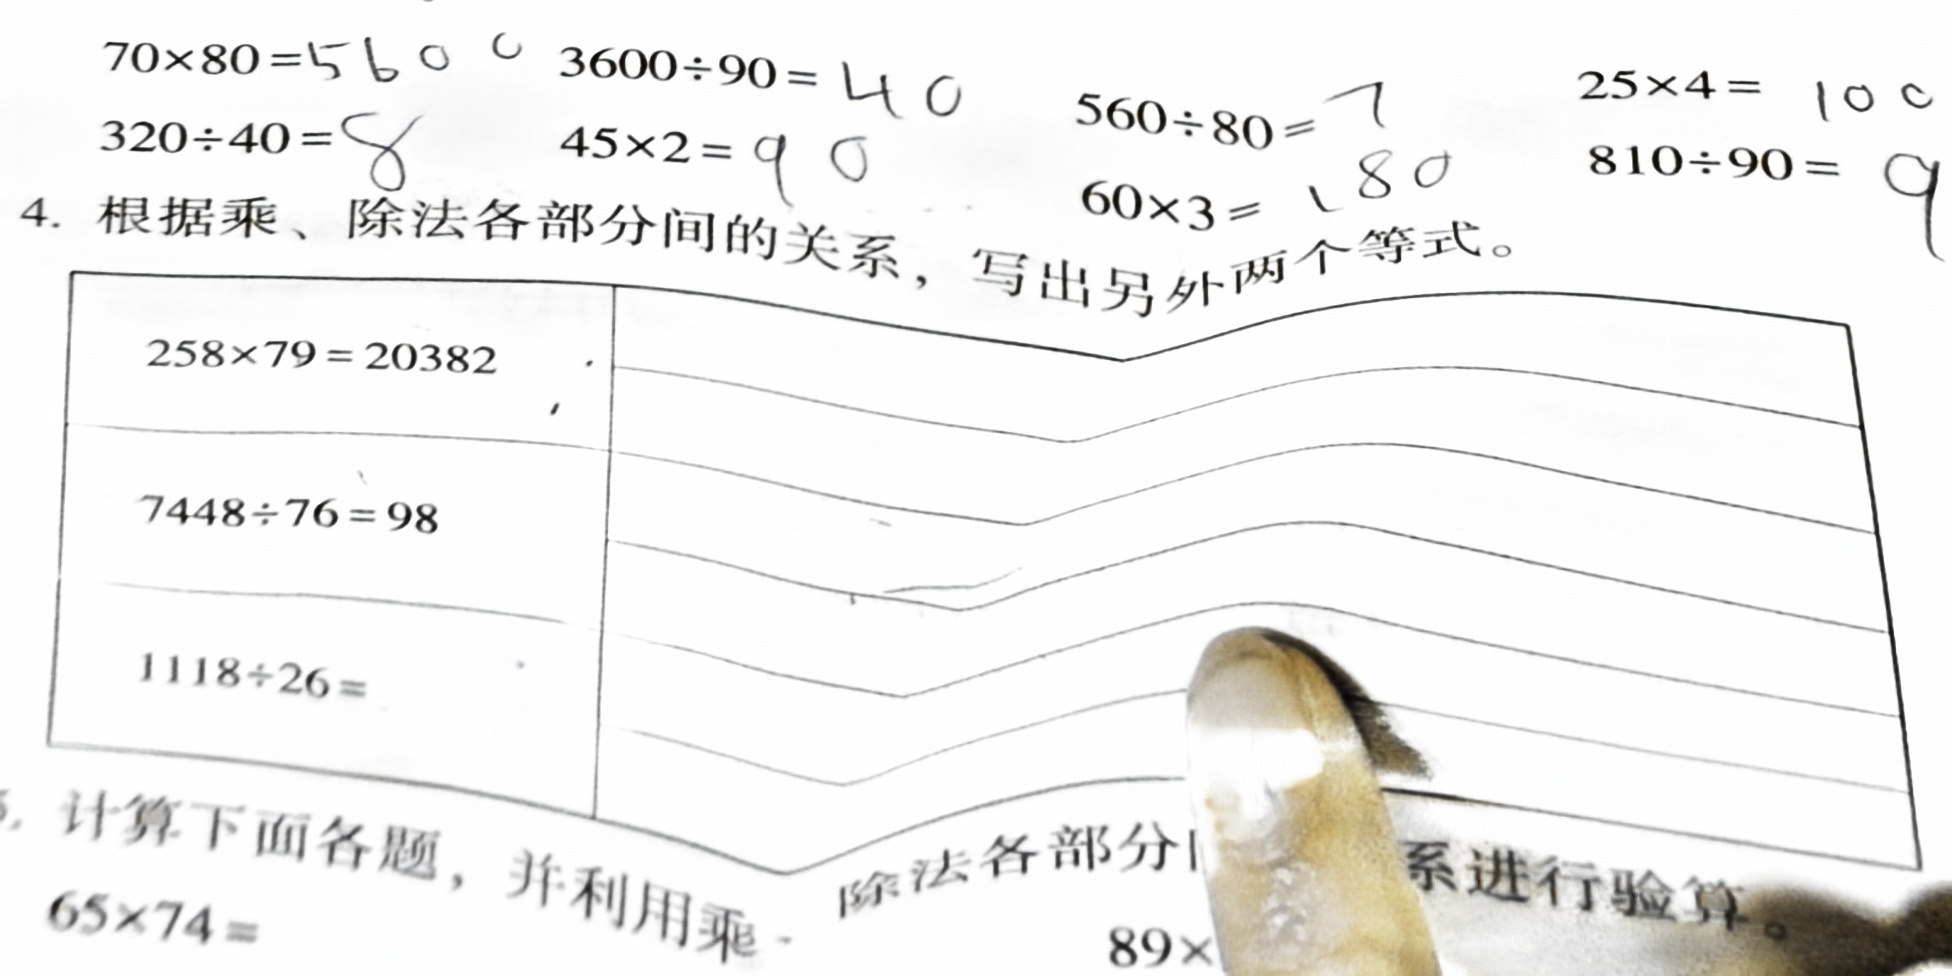 70×80=5600 3600÷90=40 560÷80=7 25×4=100
320÷40=8 45×2=90 60×3=180 810÷90=9
4. 根据乘、除法各部分间的关系，写出另外两个等式。
258×79=20382
7448÷76=98
1118÷26=
计算下面各题，并利用乘 除法各部分 系进行验算。
65×74= 89×